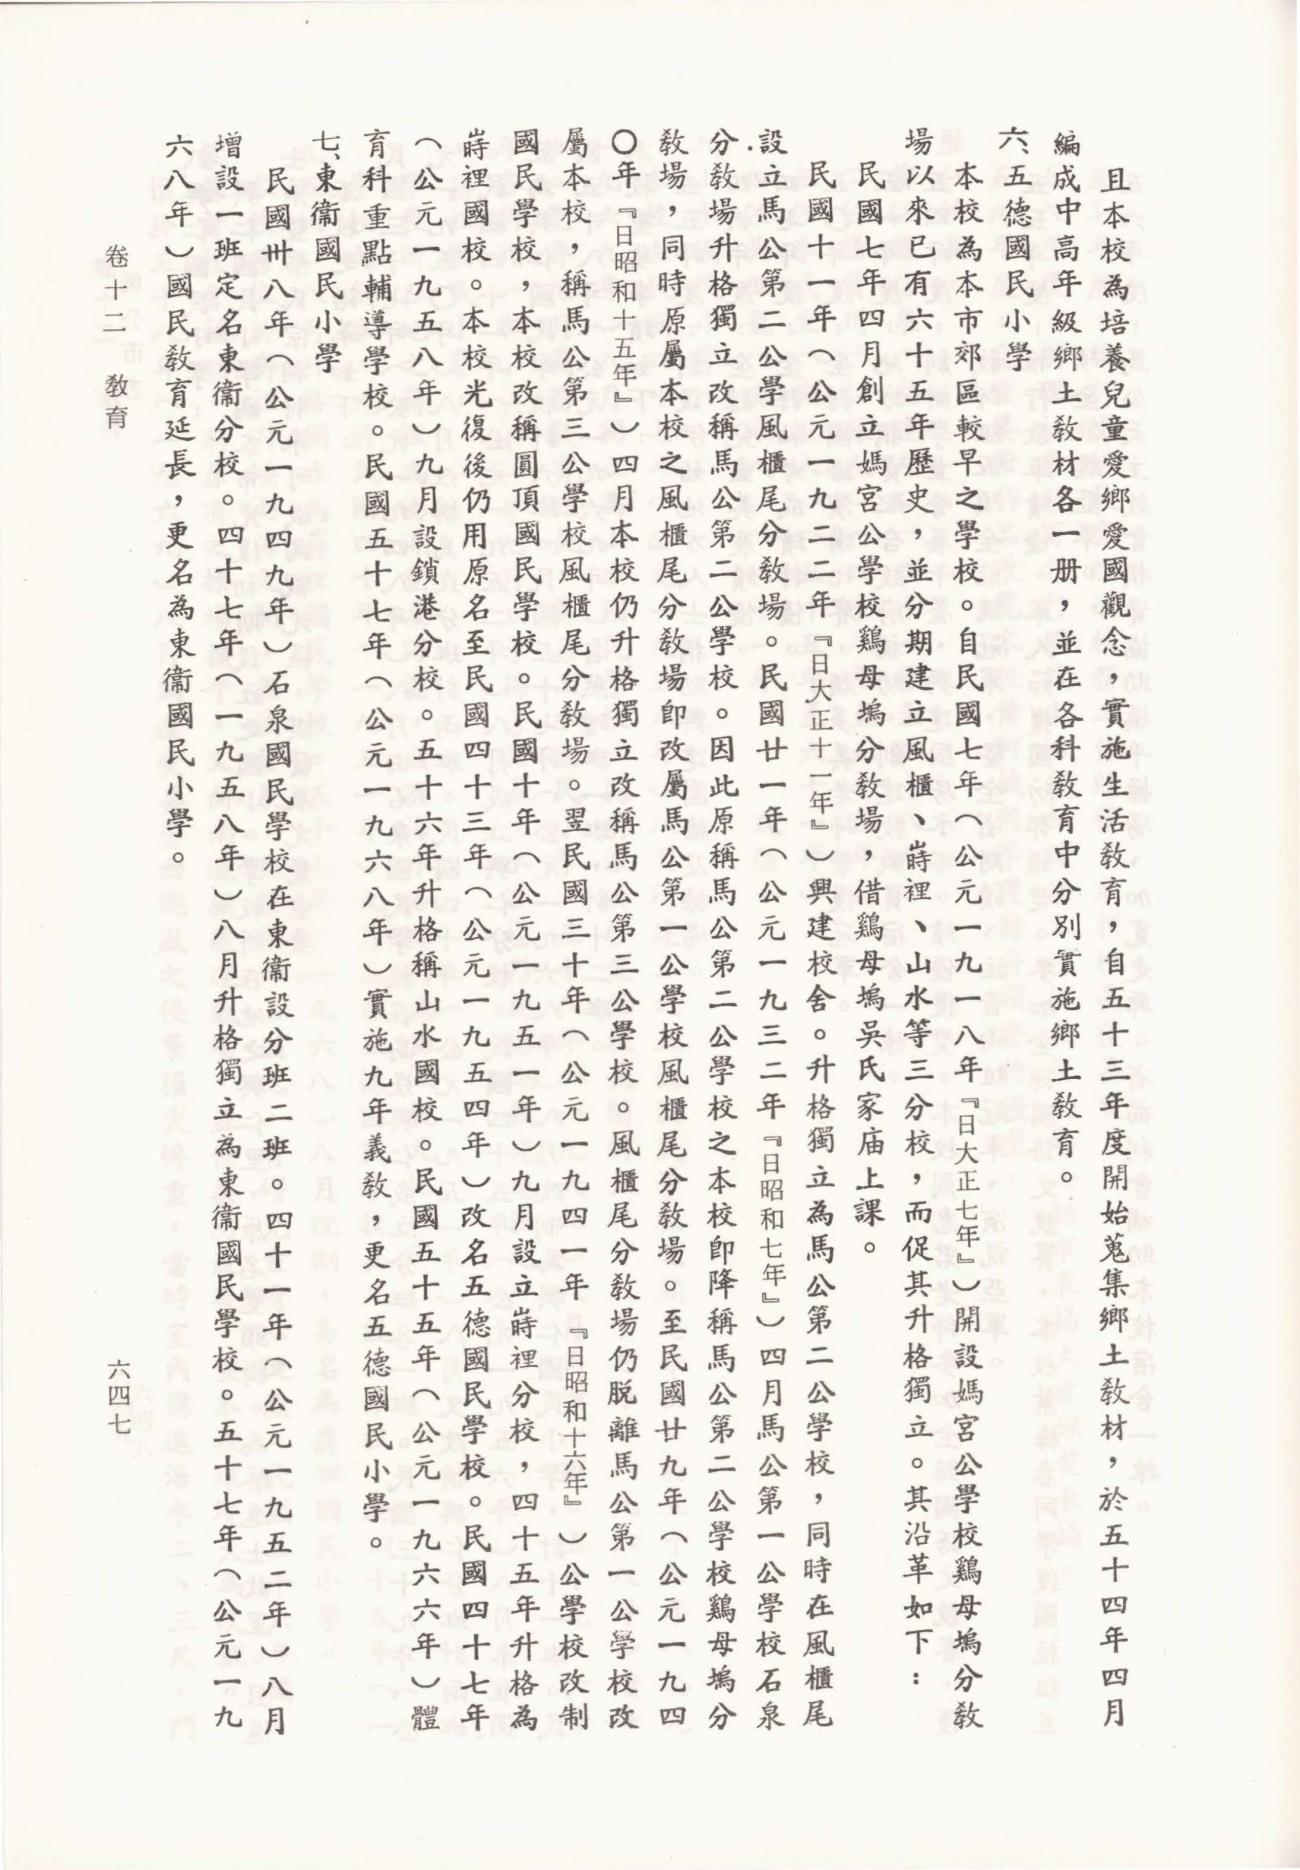 且本校為培養兒童愛鄉愛國觀念，實施生活敎育，自五十三年度開始蒐集鄉土敎材，於五十四年四月
編成中高年級鄉土敎材各一册，並在各科敎育中分別實施鄉土敎育。
六、五德國民小學
本校為本市郊區較早之學校。自民國七年（公元一九一八年『日大正七年』）開設媽宮公學校鷄母塢分敎
場以來已有六十五年歷史，並分期建立風櫃、嵵裡、山水等三分校，而促其升格獨立。其沿革如下：
民國七年四月創立媽宮公學校鷄母塢分敎場，借鷄母塢吳氏家庙上課。
民國十一年（公元一九二二年『日大正十一年』）興建校舍。升格獨立為馬公第二公學校，同時在風櫃尾
設立馬公第二公學風櫃尾分敎場。民國廿一年（公元一九三二年『日昭和七年』）四月馬公第一公學校石泉
分敎場升格獨立改稱馬公第二公學校。因此原稱馬公第二公學校之本校卽降稱馬公第二公學校鷄母塢分
敎場，同時原屬本校之風櫃尾分敎場卽改屬馬公第一公學校風櫃尾分敎場。至民國廿九年（公元一九四
〇年『日昭和十五年』）四月本校仍升格獨立改稱馬公第三公學校。風櫃尾分敎場仍脱離馬公第一公學校改
屬本校，稱馬公第三公學校風櫃尾分敎場。翌民國三十年（公元一九四一年『日昭和十六年』）公學校改制
國民學校，本校改稱圓頂國民學校。民國十年（公元一九五一年）九月設立嵵裡分校，四十五年升格為
嵵裡國校。本校光復後仍用原名至民國四十三年（公元一九五四年）改名五德國民學校。民國四十七年
（公元一九五八年）九月設鎖港分校。五十六年升格稱山水國校。民國五十五年（公元一九六六年）體
育科重點輔導學校。民國五十七年（公元一九六八年）實施九年義敎，更名五德國民小學。
七、東衞國民小學
民國卅八年（公元一九四九年）石泉國民學校在東衞設分班二班。四十一年（公元一九五二年）八月
增設一班定名東衞分校。四十七年（一九五八年）八月升格獨立為東衞國民學校。五十七年（公元一九
六八年）國民敎育延長，更名為東衞國民小學。
卷十二　敎育
六四七